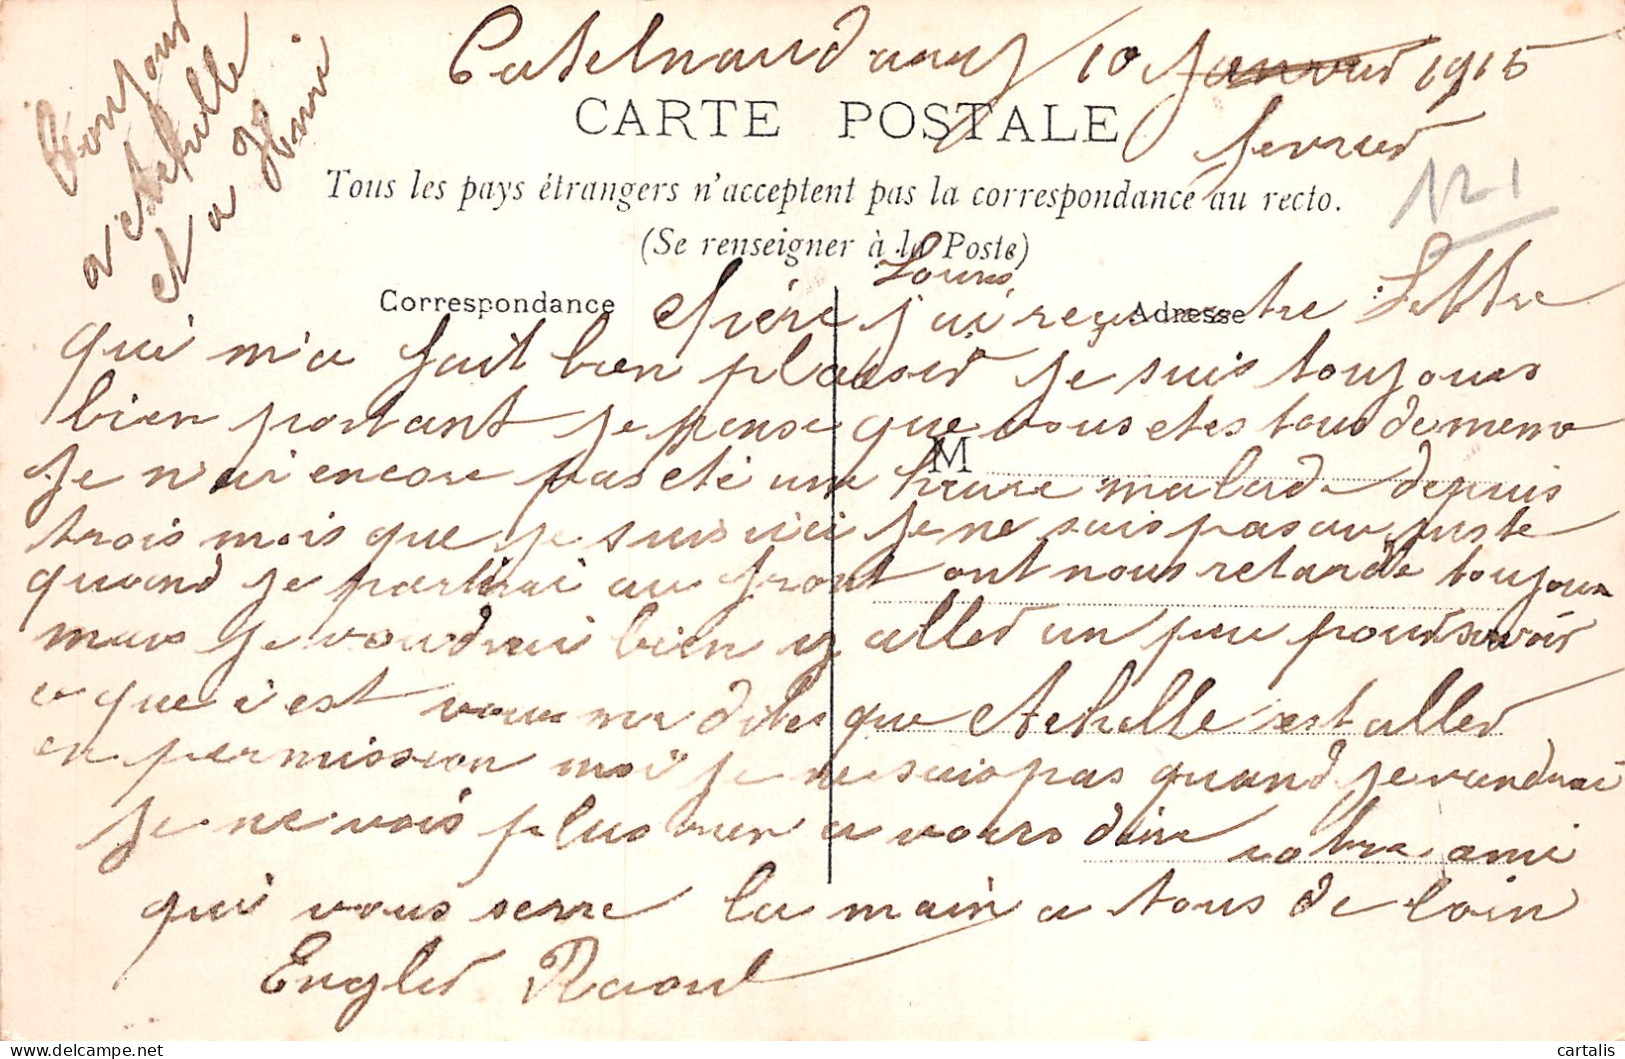 Castelnaudary 10 Janvier 1915
fevrier
Bonjour
a Achille
et a Henri
CARTE POSTALE
Tous les pays étrangers n'acceptent pas la correspondance au recto.
(Se renseigner à la Poste)
121
Correspondance
Adresse
M
Chère j'ai reçu votre Lettre
qui m'a fait bien plaisir je suis toujours
bien portant je pense que vous etes tous de meme
Je n'ai encore pas eté une heure malade depuis
trois mois que je suis ici je ne sais pas au juste
quand je partirai au front ont nous retarde toujours
mais je voudrai bien y aller un peu pour savoir
ce que c'est vous me dites que Achille est aller
en permission moi je ne sais pas quand je
Je ne vois plus rien a vous dire votre ami
qui vous serre la main a tous de loin
Engler Raoul
cartalis